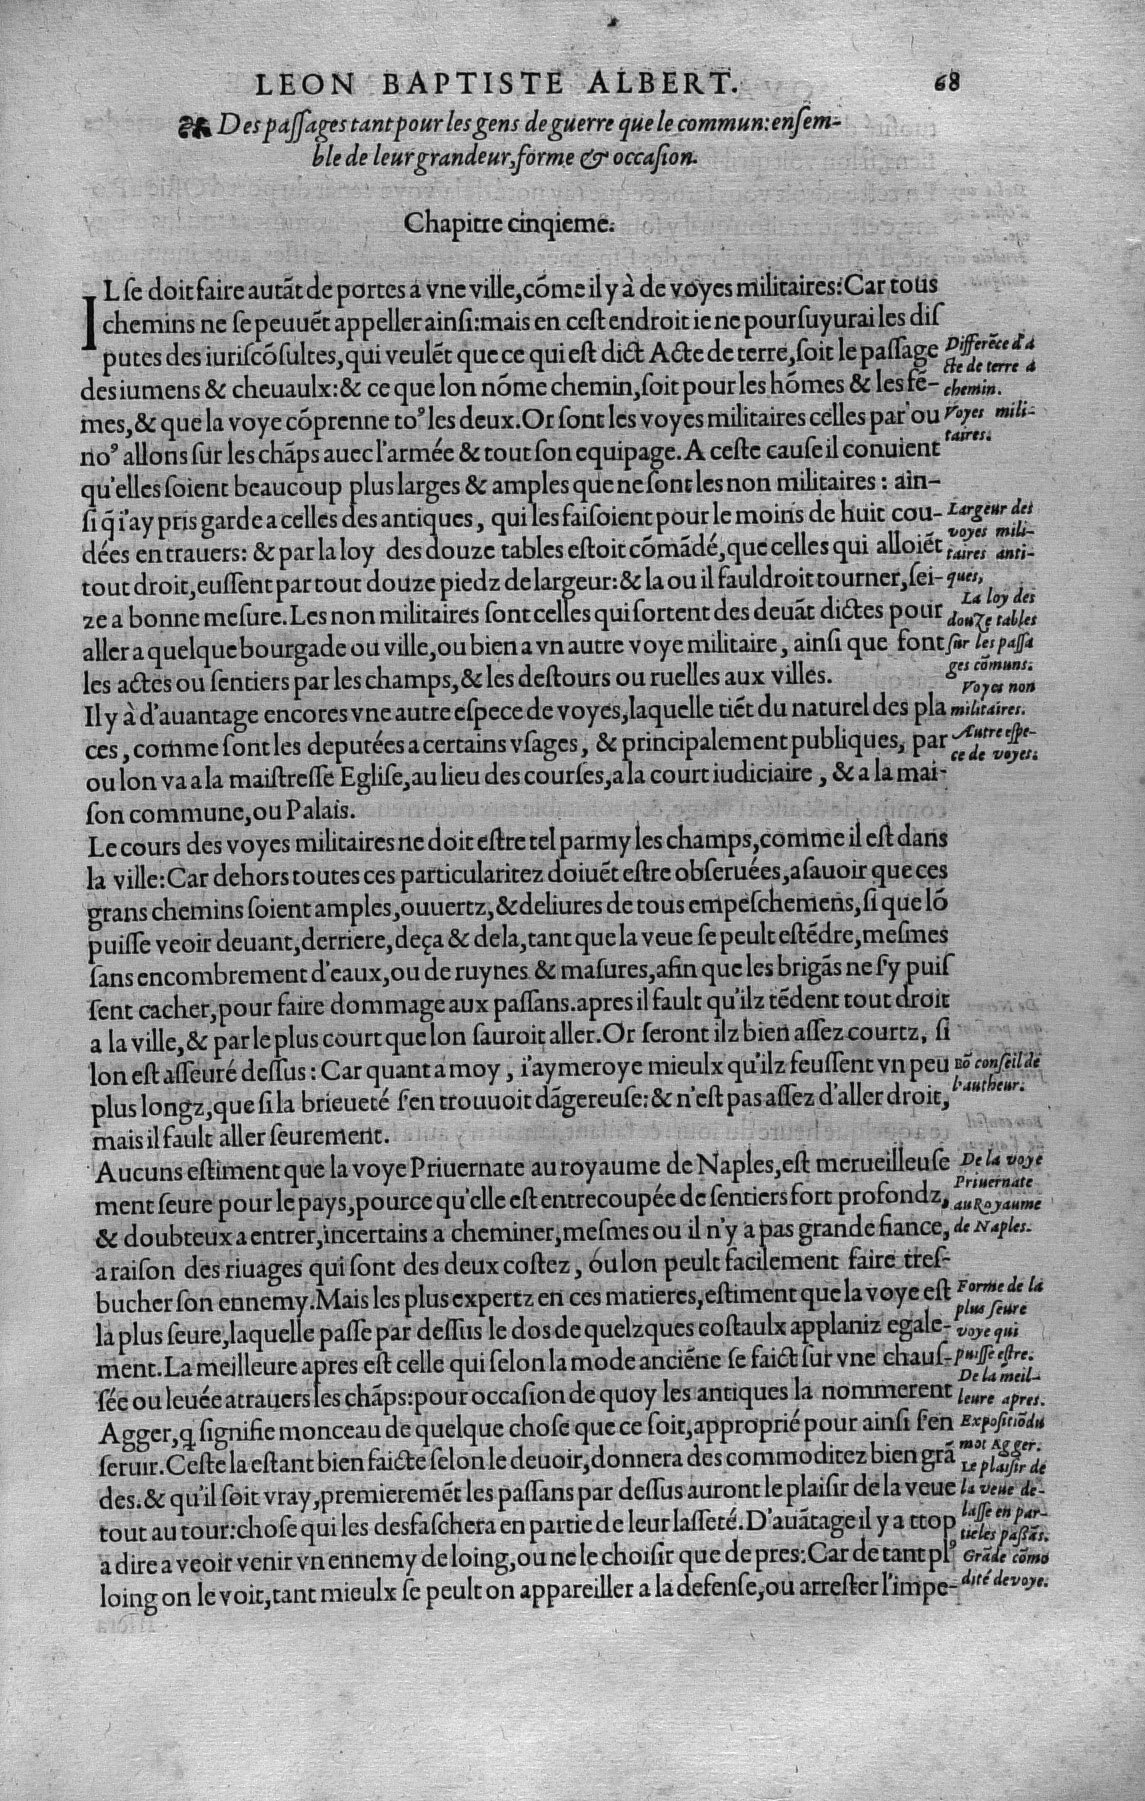 LEON BAPTISTE ALBERT. 68
Des paſſages tant pour les gens de guerre que le commun: enſem-
ble de leur grandeur, forme & occaſion.
Chapitre cinqieme.
IL ſe doit faire autãt de portes a vne ville, cõme il y à de voyes militaires: Car tous
chemins ne ſe peuuẽt appeller ainſi: mais en ceſt endroit ie ne pourſuyurai les diſ
putes des iuriſcõſultes, qui veulẽt que ce qui eſt dict Acte de terre, ſoit le paſſage
des iumens & cheuaulx: & ce que lon nõme chemin, ſoit pour les hõmes & les fẽ-
mes, & que la voye cõprenne toꝰ les deux. Or ſont les voyes militaires celles par ou
noꝰ allons ſur les chãps auec l'armée & tout ſon equipage. A ceſte cauſe il conuient
qu'elles ſoient beaucoup plus larges & amples que ne ſont les non militaires: ain-
ſi q̃ i'ay pris garde a celles des antiques, qui les faiſoient pour le moins de huit cou-
dées en trauers: & par la loy des douze tables eſtoit cõmãdé, que celles qui alloiẽt
tout droit, euſſent par tout douze piedz de largeur: & la ou il fauldroit tourner, ſei-
ze a bonne meſure. Les non militaires ſont celles qui ſortent des deuãt dictes pour
aller a quelque bourgade ou ville, ou bien a vn autre voye militaire, ainſi que font
les actes ou ſentiers par les champs, & les deſtours ou ruelles aux villes.
Il y à d'auantage encores vne autre eſpece de voyes, laquelle tiẽt du naturel des pla
ces, comme ſont les deputées a certains vſages, & principalement publiques, par
ou lon va a la maiſtreſſe Egliſe, au lieu des courſes, a la court iudiciaire, & a la mai-
ſon commune, ou Palais.
Le cours des voyes militaires ne doit eſtre tel parmy les champs, comme il eſt dans
la ville: Car dehors toutes ces particularitez doiuẽt eſtre obſeruées, aſauoir que ces
grans chemins ſoient amples, ouuertz, & deliures de tous empeſchemens, ſi que lõ
puiſſe veoir deuant, derriere, deça & dela, tant que la veue ſe peult eſtẽdre, meſmes
sans encombrement d'eaux, ou de ruynes & maſures, afin que les brigãs ne ſ'y puiſ
ſent cacher, pour faire dommage aux paſſans. apres il fault qu'ilz tẽdent tout droit
a la ville, & par le plus court que lon ſauroit aller. Or ſeront ilz bien aſſez courtz, ſi
lon eſt aſſeuré deſſus: Car quant a moy, i'aymeroye mieulx qu'ilz feuſſent vn peu
plus longz, que ſi la brieueté ſ'en trouuoit dãgereuſe: & n'eſt pas aſſez d'aller droit,
mais il fault aller ſeurement.
Aucuns eſtiment que la voye Priuernate au royaume de Naples, eſt merueilleuſe
ment ſeure pour le pays, pource qu'elle eſt entrecoupée de ſentiers fort profondz,
& doubteux a entrer, incertains a cheminer, meſmes ou il n'y a pas grande fiance,
a raiſon des riuages qui ſont des deux coſtez, ou lon peult facilement faire treſ-
bucher ſon ennemy. Mais les plus expertz en ces matieres, eſtiment que la voye eſt
la plus ſeure, laquelle paſſe par deſſus le dos de quelzques coſtaulx applaniz egale-
ment. La meilleure apres eſt celle qui ſelon la mode anciẽne ſe faict ſur vne chauſ-
ſée ou leuée atrauers les chãps: pour occaſion de quoy les antiques la nommerent
Agger, q ſignifie monceau de quelque choſe que ce ſoit, approprié pour ainſi ſ'en
ſeruir. Ceſte la eſtant bien faicte ſelon le deuoir, donnera des commoditez bien grã
des. & qu'il ſoit vray, premieremẽt les paſſans par deſſus auront le plaiſir de la veue
tout au tour: choſe qui les desfaſchera en partie de leur laſſeté. D'auãtage il y a trop
a dire a veoir venir vn ennemy de loing, ou ne le choiſir que de pres: Car de tant plꝰ
loing on le voit, tant mieulx ſe peult on appareiller a la defenſe, ou arreſter l'impe-
Differẽce d'a
cte de terre a
chemin.
Voyes mili-
taires.
Largeur des
voyes mili-
taires anti-
ques,
La loy des
douze tables
ſur les paſſa
ges cõmuns.
Voyes non
militaires.
Autre eſpe-
ce de voyes.
Bõ conſeil de
l'autheur.
De la voye
Priuernate
au Royaume
de Naples.
Forme de la
plus ſeure
voye qui
puiſſe eſtre.
De la meil-
leure apres.
Expoſitiõ du
mot Agger.
Le plaiſir de
la veue de-
laſſe en par-
tie les paſſãs.
Grãde cõmo
dité de voye.